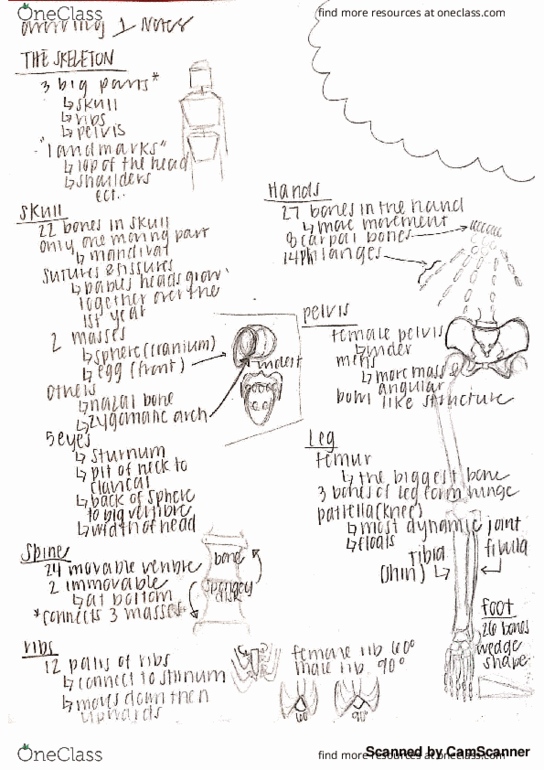 OneClass
find more resources at oneclass.com
1 Notes
THE SKELETON
3 big parts*
↳ skull
↳ ribs
↳ pelvis
"landmarks"
↳ top of the head
↳ shoulders
ect..
Skull
22 bones in skull
only one moving part
↳ mandival
sutures & issures
↳ babies heads grow
together over the
1st year
2 masses
↳ sphere (cranium)
↳ egg (front)
indent
others
↳ nazal bone
↳ zygomatic arch
5 eyes
↳ sturnum
↳ pit of neck to
clavical
↳ back of sphere
to big vertibre
↳ width of head
Spine
24 movable vertibre
2 immovable
↳ at bottom
*connects 3 masses*
bone
spongey
disk
ribs
12 pairs of ribs
↳ connect to sturnum
↳ moves down then
upwards
Hands
27 bones in the hand
↳ mac movement
8 carpal bones
14 philanges
pelvis
female pelvis
↳ wider
mens
↳ more mass &
angular
bowl like structure
Leg
femur
↳ the biggest bone
3 bones of leg form hinge
patiella (knee)
↳ most dynamic joint
↳ floats
tibia
(shin) ↳
fibula
foot
26 bones
wedge
shape
female rib 60°
male rib 90°
60°
90°
OneClass
find more resources at oneclass.com
Scanned by CamScanner